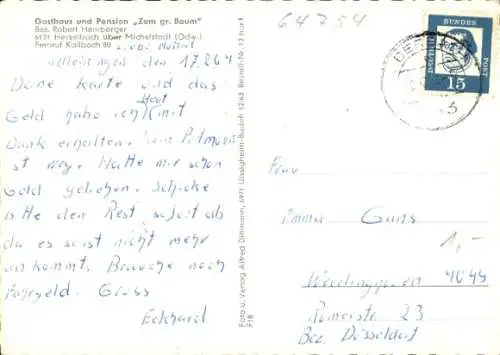 Gasthaus und Pension „Zum gr. Baum"
Bes. Robert Hemberger
6121 Hesselbach über Michelstadt (Odw.)
Fernruf Kailbach 89
Liebe Mutti
den 17.8.64
Deine Karte und das
Geld habe ich Heut mit
Dank erhalten. Mein Portmonai
ist weg. Hatte mir schon
Geld geliehen. Schicke
bitte den Rest sofort ab
da es sonst nicht mehr
ankommt. Brauche noch
Fahrgeld. Gruss
Eckhard
Foto u. Verlag Alfred Dittmann, 6971 Uissigheim-Buden 12/63 Bestell-Nr.
F18
64754
DEUTSCHE BUNDESPOST
15
Frau
Emma Gans
1,-
4045
Römerstr 23
Bez. Düsseldorf